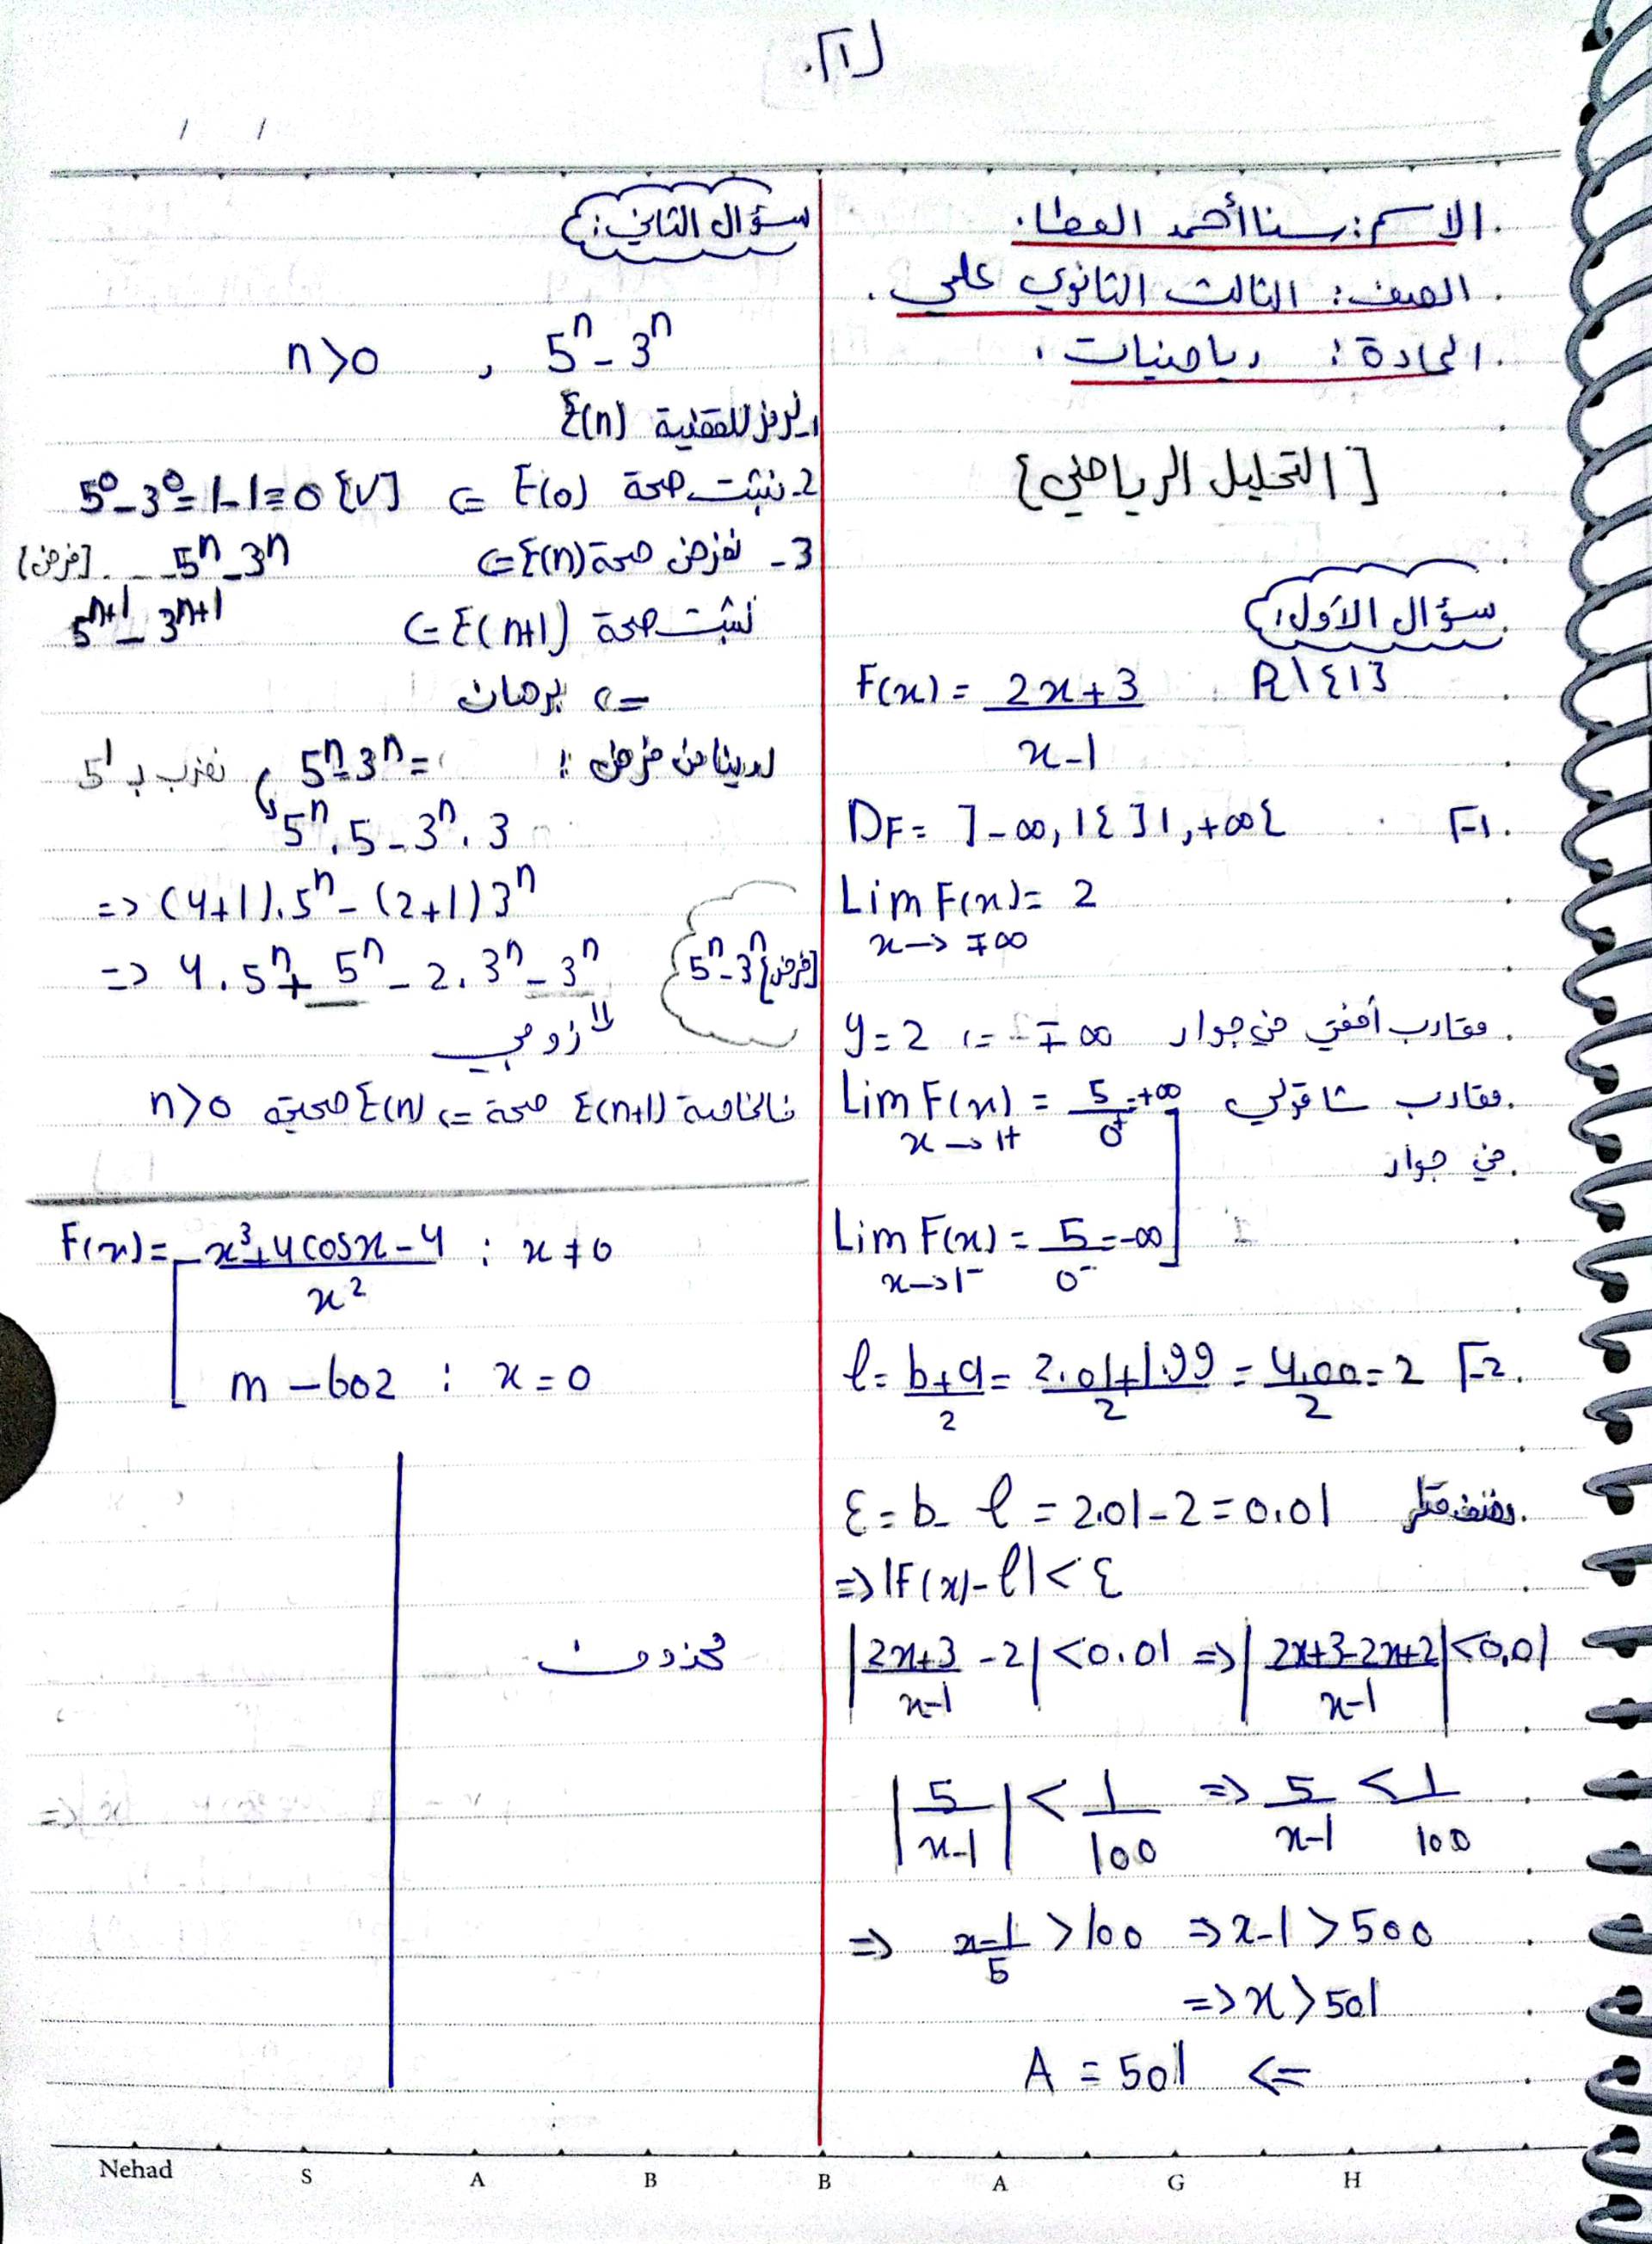 [1].
/ /
الاسم: سنا أحمد العطا.
الصف: الثالث الثانوي علمي.
المادة: رياضيات.
[التحليل الرياضي]
سؤال الأول:
F(x) = (2x+3)/(x-1) R\{1}
1- DF = ]-∞, 1[ ]1, +∞[
Lim F(x) = 2
x → ∓∞
مقارب أفقي في جوار ∓∞ => y=2
مقارب شاقولي Lim F(x) = 5/0+ = +∞
x → 1+
في جوار
Lim F(x) = 5/0- = -∞
x → 1-
2- l = (b+a)/2 = (2.01+1.99)/2 = 4.00/2 = 2
ε = b - l = 2.01 - 2 = 0.01
=> |F(x) - l| < ε
|(2x+3)/(x-1) - 2| < 0.01 => |(2x+3-2x+2)/(x-1)| < 0.01
|5/(x-1)| < 1/100 => 5/(x-1) < 1/100
=> (x-1)/5 > 100 => x-1 > 500
=> x > 501
A = 501 <=
سؤال الثاني:
5ⁿ - 3ⁿ , n>0
1- نرمز للقضية E(n)
2- نثبت صحة E(0) => 5⁰-3⁰=1-1=0 [V]
3- نفرض صحة E(n) => 5ⁿ-3ⁿ [فرض]
نثبت صحة E(n+1) => 5ⁿ⁺¹ - 3ⁿ⁺¹
=> برهان
لدينا من فرض: 5ⁿ-3ⁿ= نضرب ب 5¹
5ⁿ.5 - 3ⁿ.3
=> (4+1).5ⁿ - (2+1)3ⁿ
=> 4.5ⁿ + 5ⁿ - 2.3ⁿ - 3ⁿ
5ⁿ-3ⁿ [فرض]
زوجي
فالخاصة E(n+1) صحة => E(n) صحيحة n>0
F(x) = [ (x³+4cosx-4)/x² : x≠0
m - 602 : x=0
محذوف
Nehad S A B B A G H